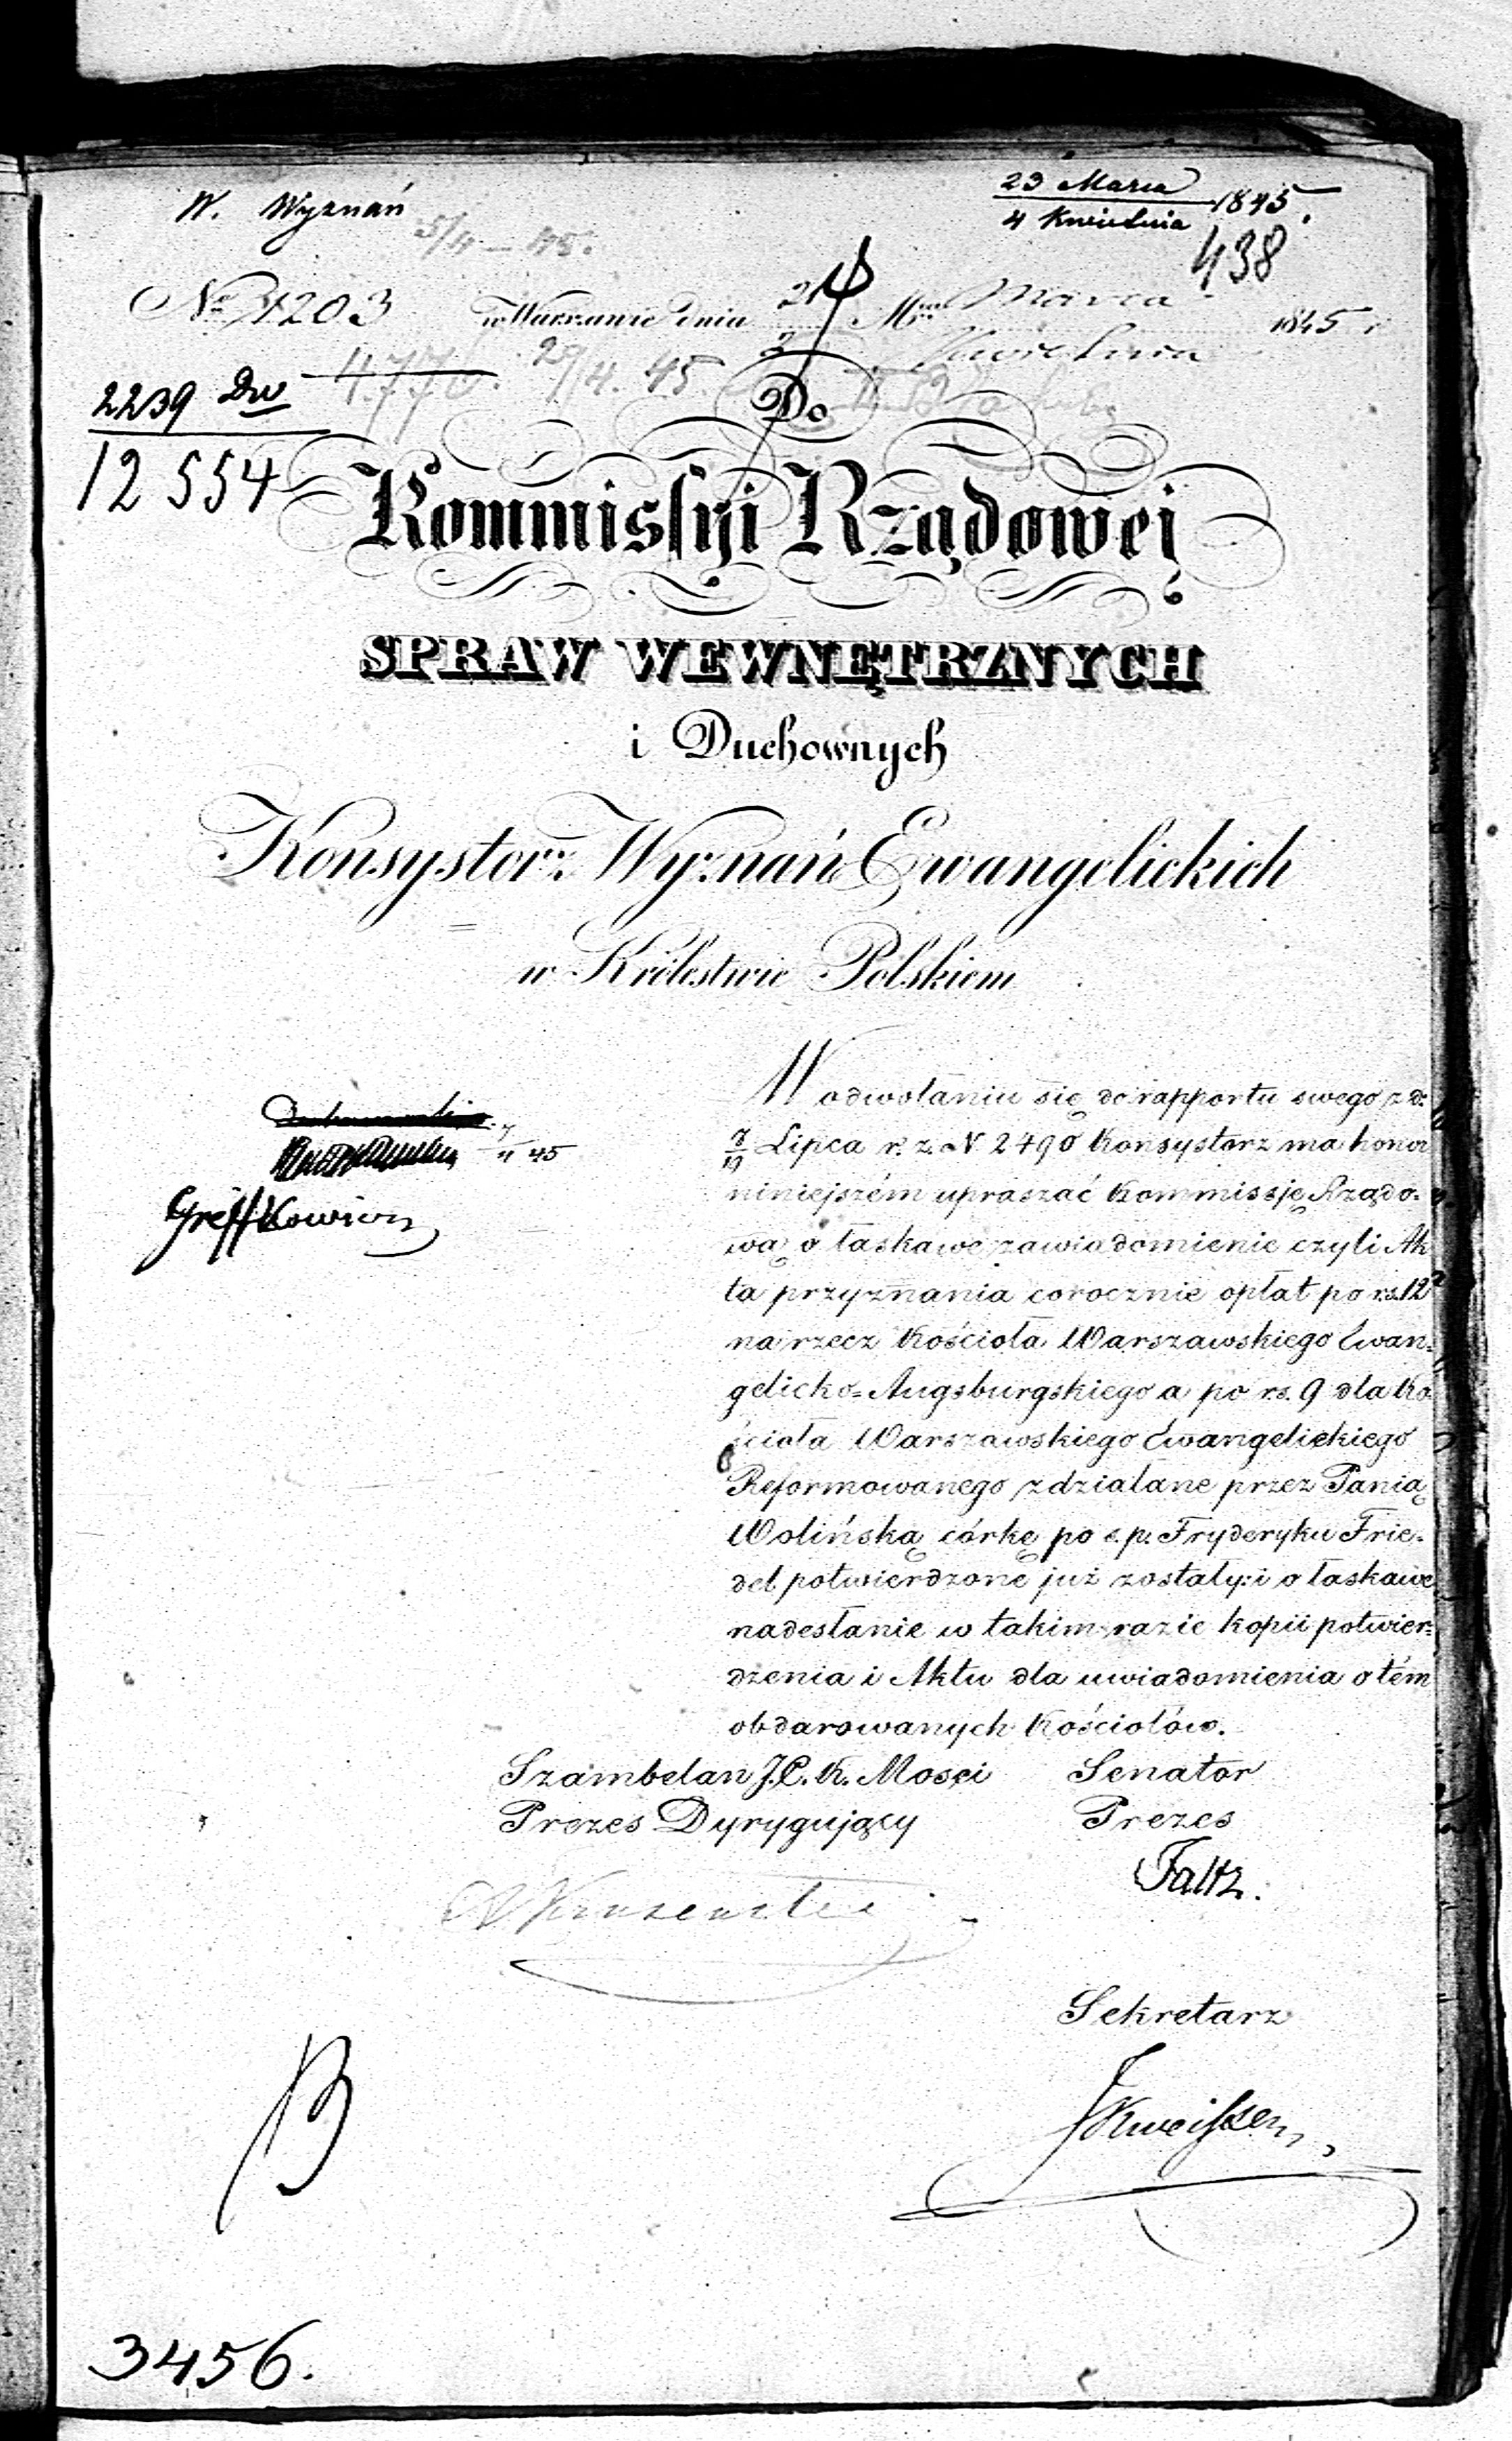 W. Wyznań
23 Marca
4 Kwietnia 1845.
438
5/4 – 45.
№ 1203 w Warszawie dnia 21 Mca Marca
2 Kwietnia 1845 r
4776. 29/4. 45.
2239 Dw
12554
Do
Kommissyi Rządowej
SPRAW WEWNĘTRZNYCH
i Duchownych
Konsystorz Wyznań Ewangelickich
w Królestwie Polskiem
W odwołaniu się do rapportu swego z d:
7/19 Lipca r. z. N 2490 Konsystorz ma honor
niniejszém upraszać Kommissję Rządo-
wą o łaskawe zawiadomienie czyli Ak
ta przyznania corocznie opłat po rs. 12
na rzecz Kościoła Warszawskiego Ewan-
gelicko-Augsburgskiego a po rs. 9 dla Ko
ścioła Warszawskiego Ewangelickiego
Reformowanego zdziałane przez Panią
Wolińską córkę po ś.p. Fryderyku Frie-
del potwierdzone już zostały: i o łaskawe
nadesłanie w takim razie kopii potwier-
dzenia i Aktu dla uwiadomienia o tém
obdarowanych Kościołów.
7/4 45
Szambelan J.C.K. Mości
Prezes Dyrygujący
Senator
Prezes
Faltz.
Sekretarz
3456.